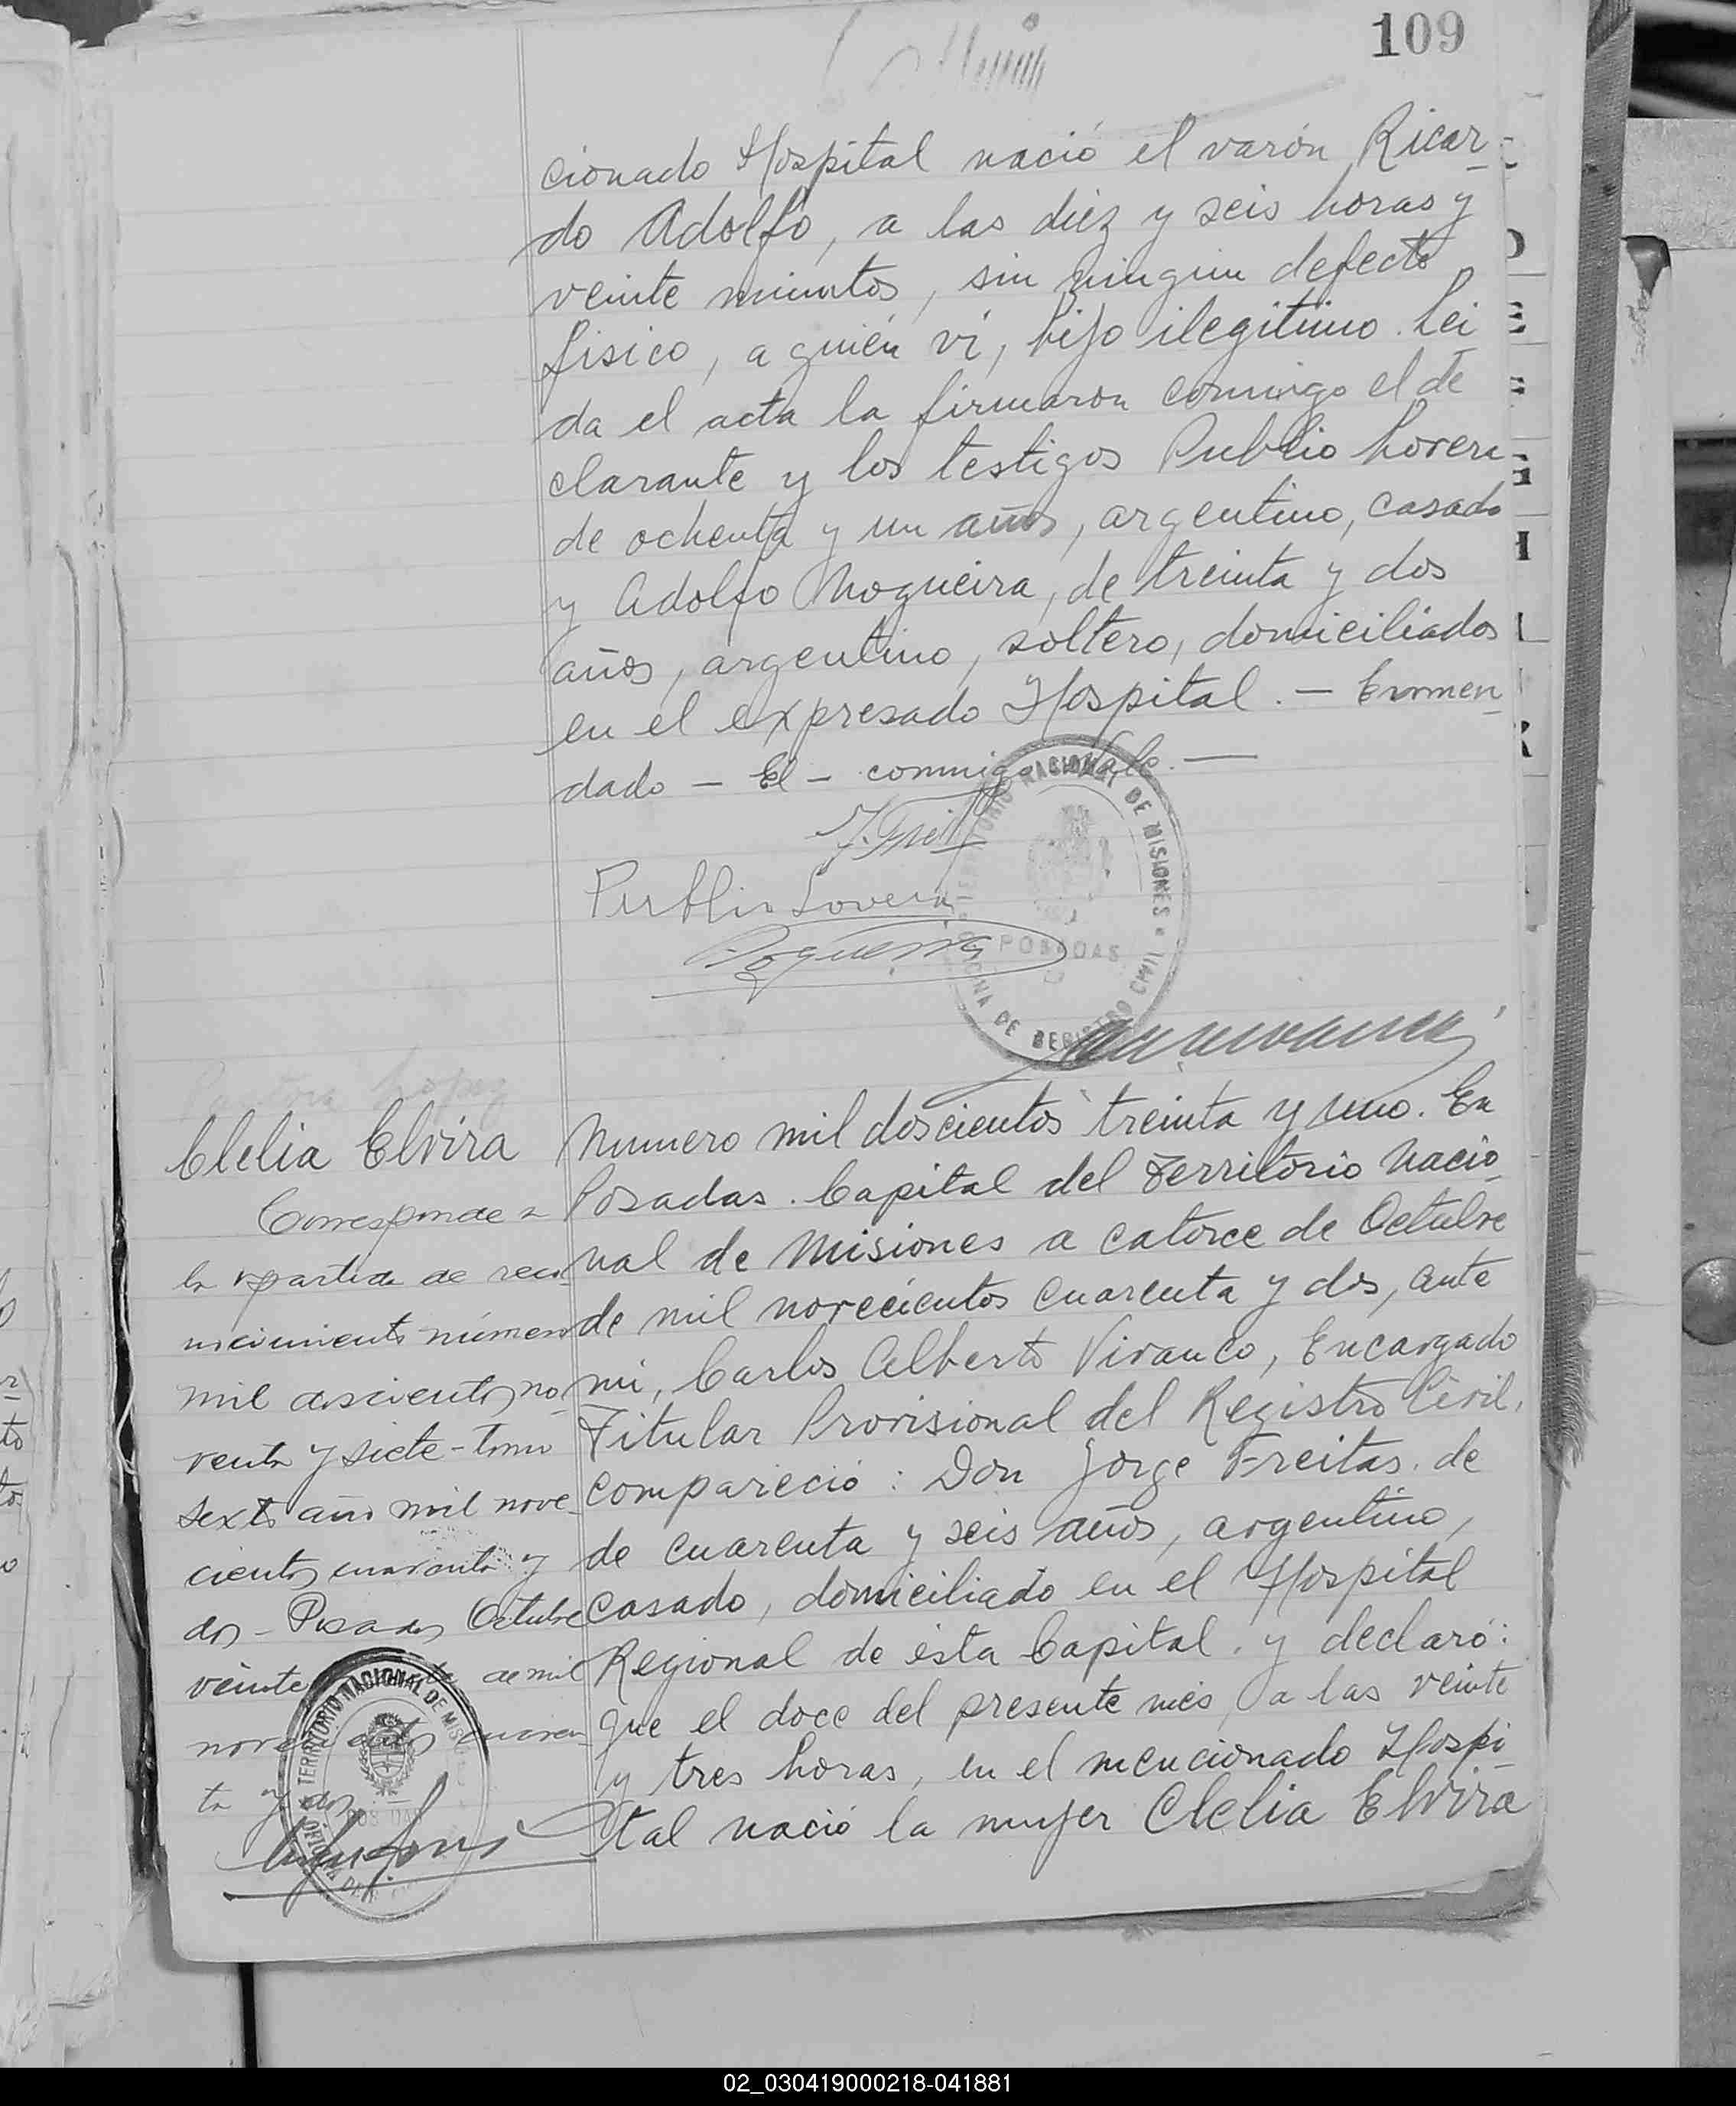 109
cionado Hospital nació el varón Ricar-
do Adolfo, a las diez y seis horas y
veinte minutos, sin ningun defecto
fisico, a quién vi, hijo ilegitimo. Lei
da el acta la firmaron conmigo el de
clarante y los testigos Publio Lovera
de ochenta y un años, argentino, casado
y Adolfo Nogueira, de treinta y dos
años, argentino, soltero, domiciliados
en el expresado Hospital. — Enmen-
dado — El — conmigo Vale. —
Publio Lovera
TERRITORIO NACIONAL DE MISIONES
POSADAS
OFICINA DE REGISTRO CIVIL
Clelia Elvira
Corresponde a
la partida de reco
nocimiento número
mil doscientos no-
venta y siete - tomo
sexto año mil nove-
cientos cuarenta y
dos - Posadas Octubre
veinte de mil
novecientos cuaren-
ta y dos
TERRITORIO NACIONAL DE MISIONES
POSADAS
Numero mil doscientos treinta y uno. En
Posadas. Capital del Territorio Nacio-
nal de Misiones a catorce de Octubre
de mil novecientos cuarenta y dos, ante
mi, Carlos Alberto Vivanco, Encargado
Titular Provisional del Registro Civil,
compareció: Don Jorge Freitas. de
de cuarenta y seis años, argentino,
casado, domiciliado en el Hospital
Regional de ésta Capital. y declaró:
que el doce del presente més, a las veinte
y tres horas, en el mencionado Hospi-
tal nació la mujer Clelia Elvira
02_030419000218-041881